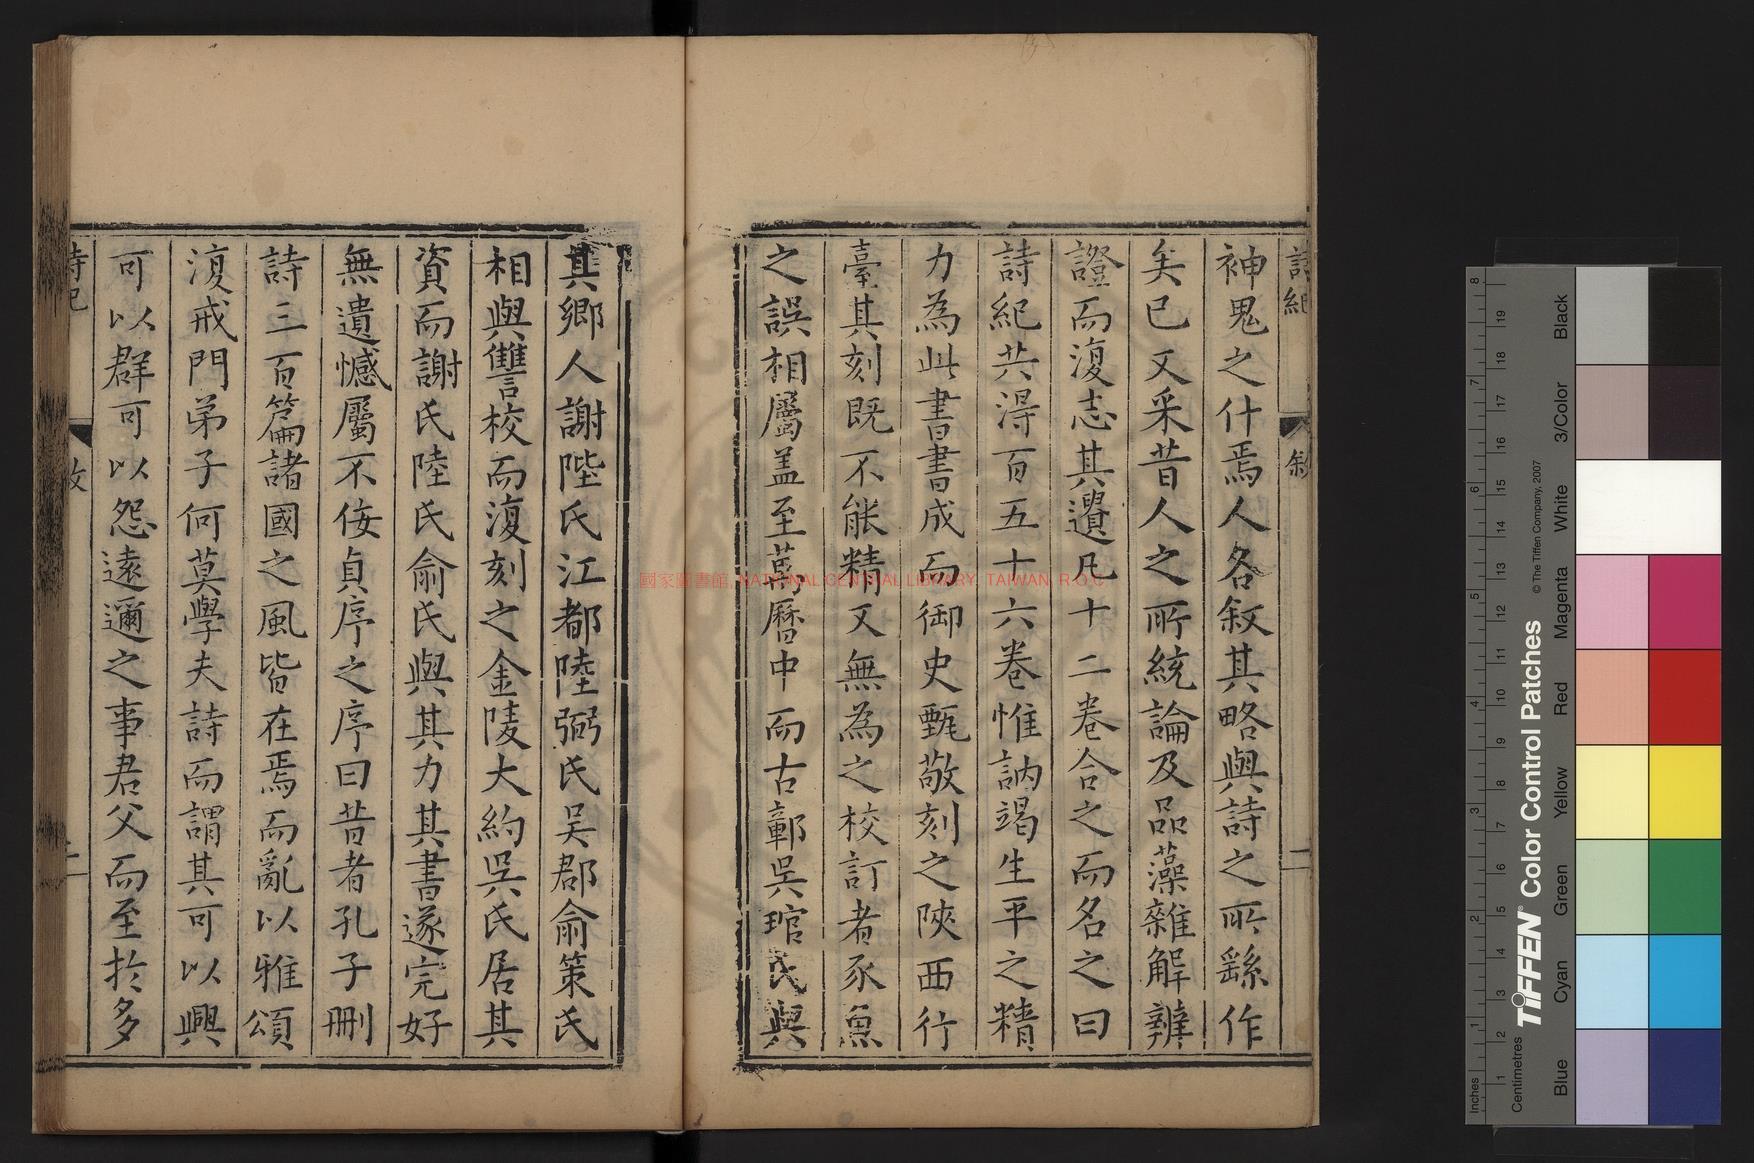 詩紀 敘 二
神鬼之什焉人各叙其略與詩之所繇作
矣已又采昔人之所統論及品藻雜解辨
證而復志其遺凡十二卷合之而名之曰
詩紀共得百五十六卷惟訥竭生平之精
力為此書書成而御史甄敬刻之陝西行
臺其刻既不能精又無為之校訂者豕魚
之誤相屬盖至萬曆中而古鄣吳琯氏與
其鄉人謝陛氏江都陸弼氏吳郡俞策氏
相與讐校而復刻之金陵大約吳氏居其
資而謝氏陸氏俞氏與其力其書遂完好
無遺憾屬不佞貞序之序曰昔者孔子刪
詩三百篇諸國之風皆在焉而亂以雅頌
復戒門弟子何莫學夫詩而謂其可以興
可以群可以怨遠邇之事君父而至於多
國家圖書館, NATIONAL CENTRAL LIBRARY, TAIWAN, R.O.C
Inches
1 2 3 4 5 6 7 8
Centimetres
TIFFEN® Color Control Patches
© The Tiffen Company, 2007
Blue
Cyan
Green
Yellow
Red
Magenta
White
3/Color
Black